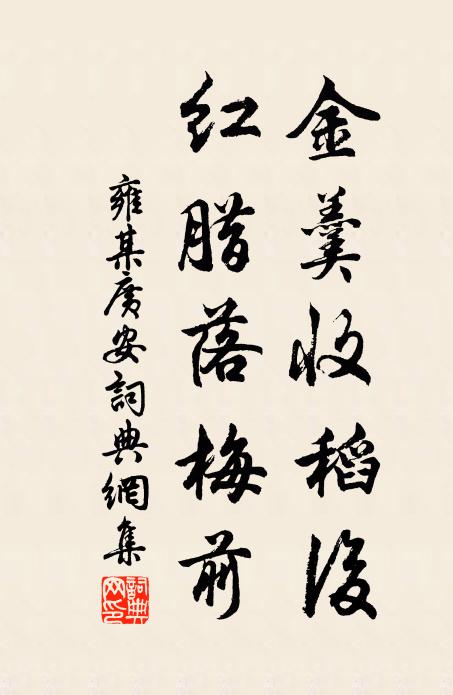 金羹收稻後
紅腊落梅前
雍某廣安詞典網集
詞典網印